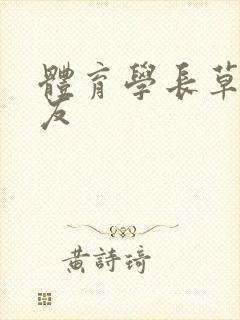 體育學長草
友
黃詩琦